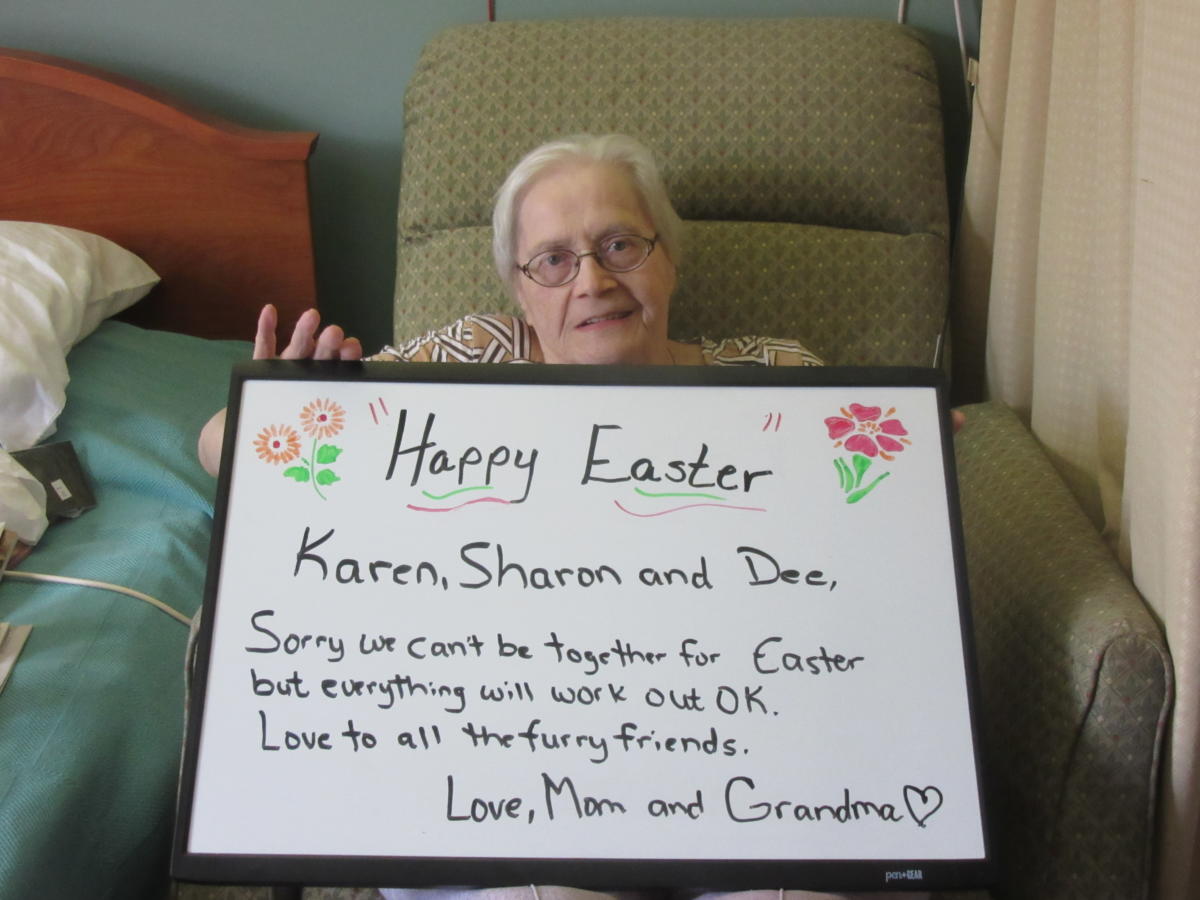 "Happy Easter"
Karen, Sharon and Dee,
Sorry we can't be together for Easter
but everything will work out OK.
Love to all the furry friends.
Love, Mom and Grandma♡
pen+GEAR